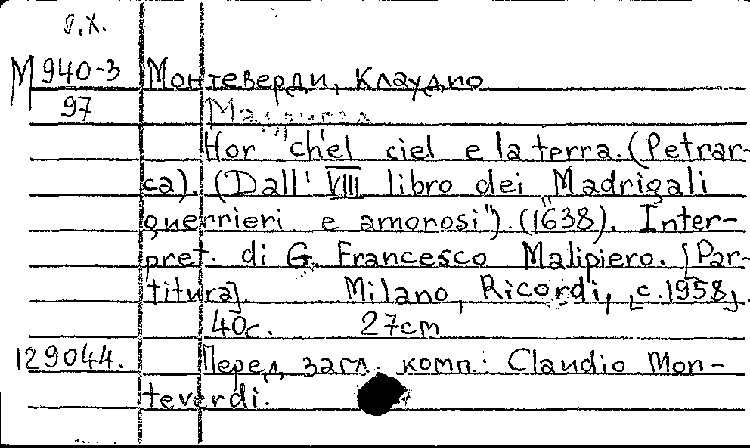 О.Х.
М 940-3 Монтеверди, Клаудио
97
Hor ch'el ciel e la terra. (Petrar-
ca). (Dall' VIII libro dei "Madrigali
guerrieri e amorosi") (1638). Inter-
pret. di G. Francesco Malipiero. [Par-
titura]. Milano, Ricordi, [c.1958].
40с. 27cm
129044. Перед загл. комп.: Claudio Mon-
teverdi.